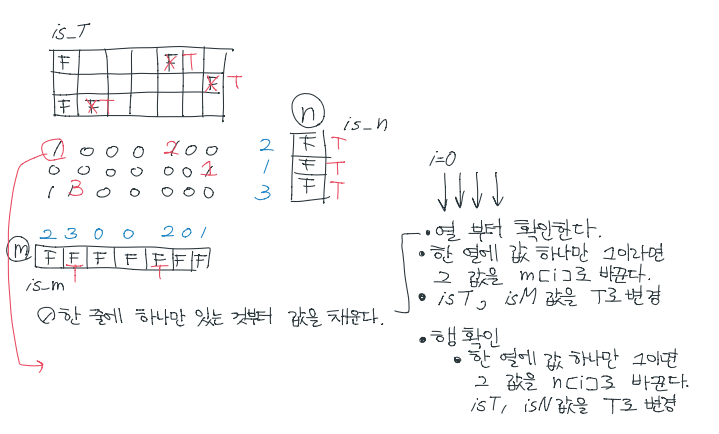 is_T
F F T
F T
F F T
n
is_n
1 0 0 0 1 0 0 2 F T
0 0 0 0 0 0 1 1 F T
1 3 0 0 0 0 0 3 F T
2 3 0 0 2 0 1
m F F F F F F F
T T
is_m
① 한 줄에 하나만 있는 것부터 값을 채운다.
i=0
• 열 부터 확인한다.
• 한 열에 값 하나만 1이라면
그 값을 m[i]로 바꾼다.
• isT, isM 값을 T로 변경
• 행 확인
• 한 열에 값 하나만 1이면
그 값을 n[i]로 바꾼다.
isT, isN 값을 T로 변경